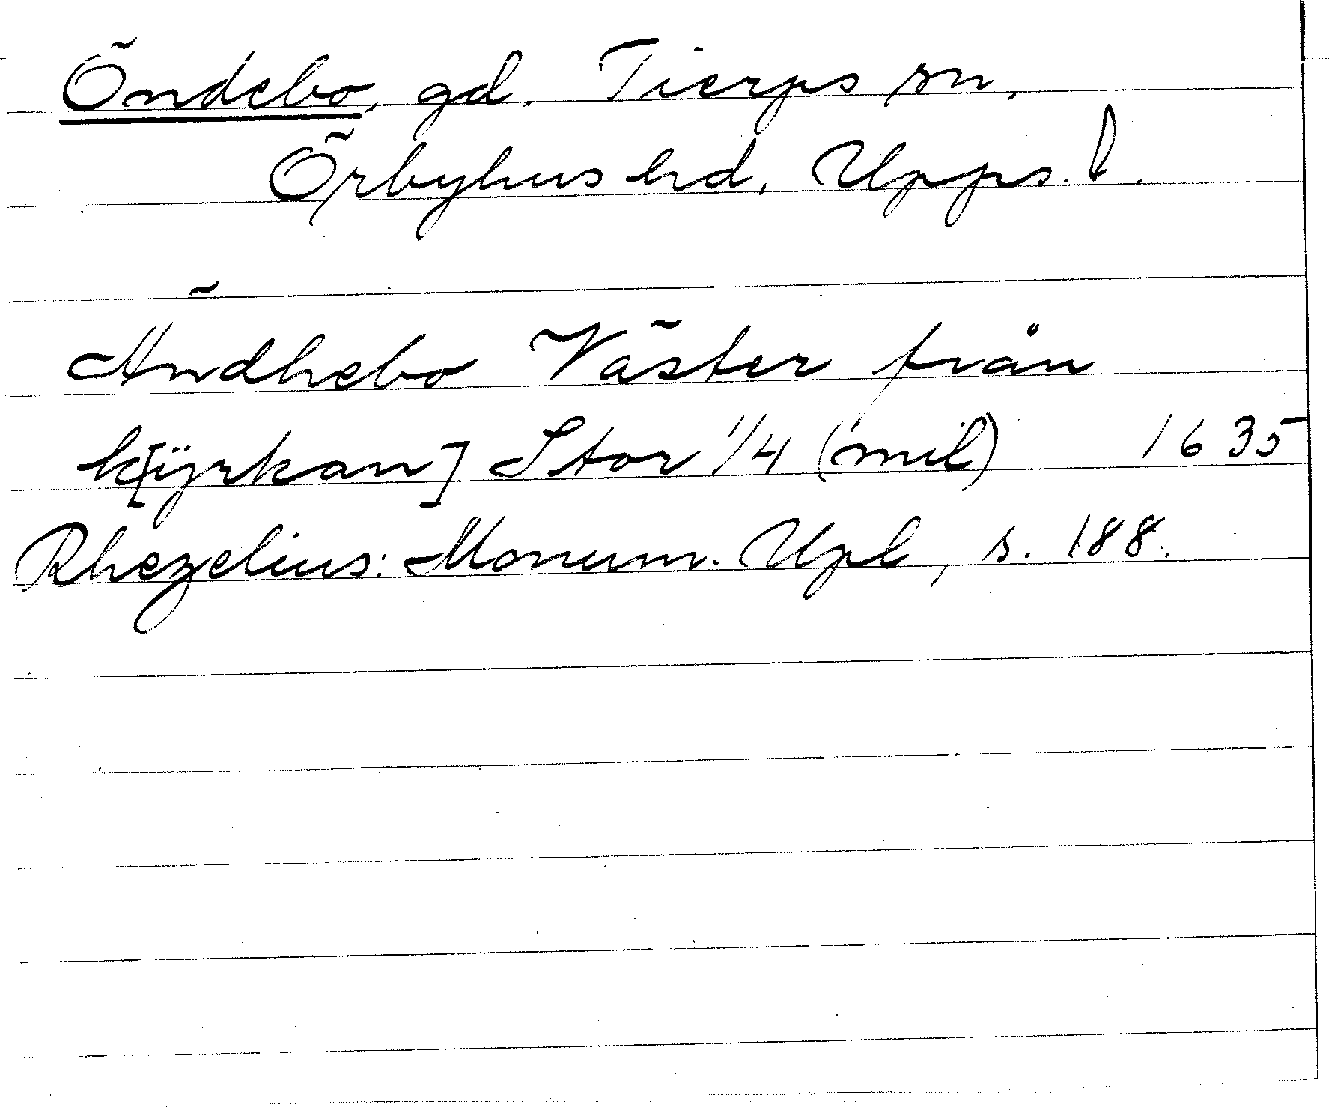 Öndebo, gd. Tierps sn,
Örbyhus hd, Upps. l.
Ändhebo Väster från
k[ÿrkan] Stor 1/4 (mil) 1635
Rhezelius: Monum. Upl, s. 188.